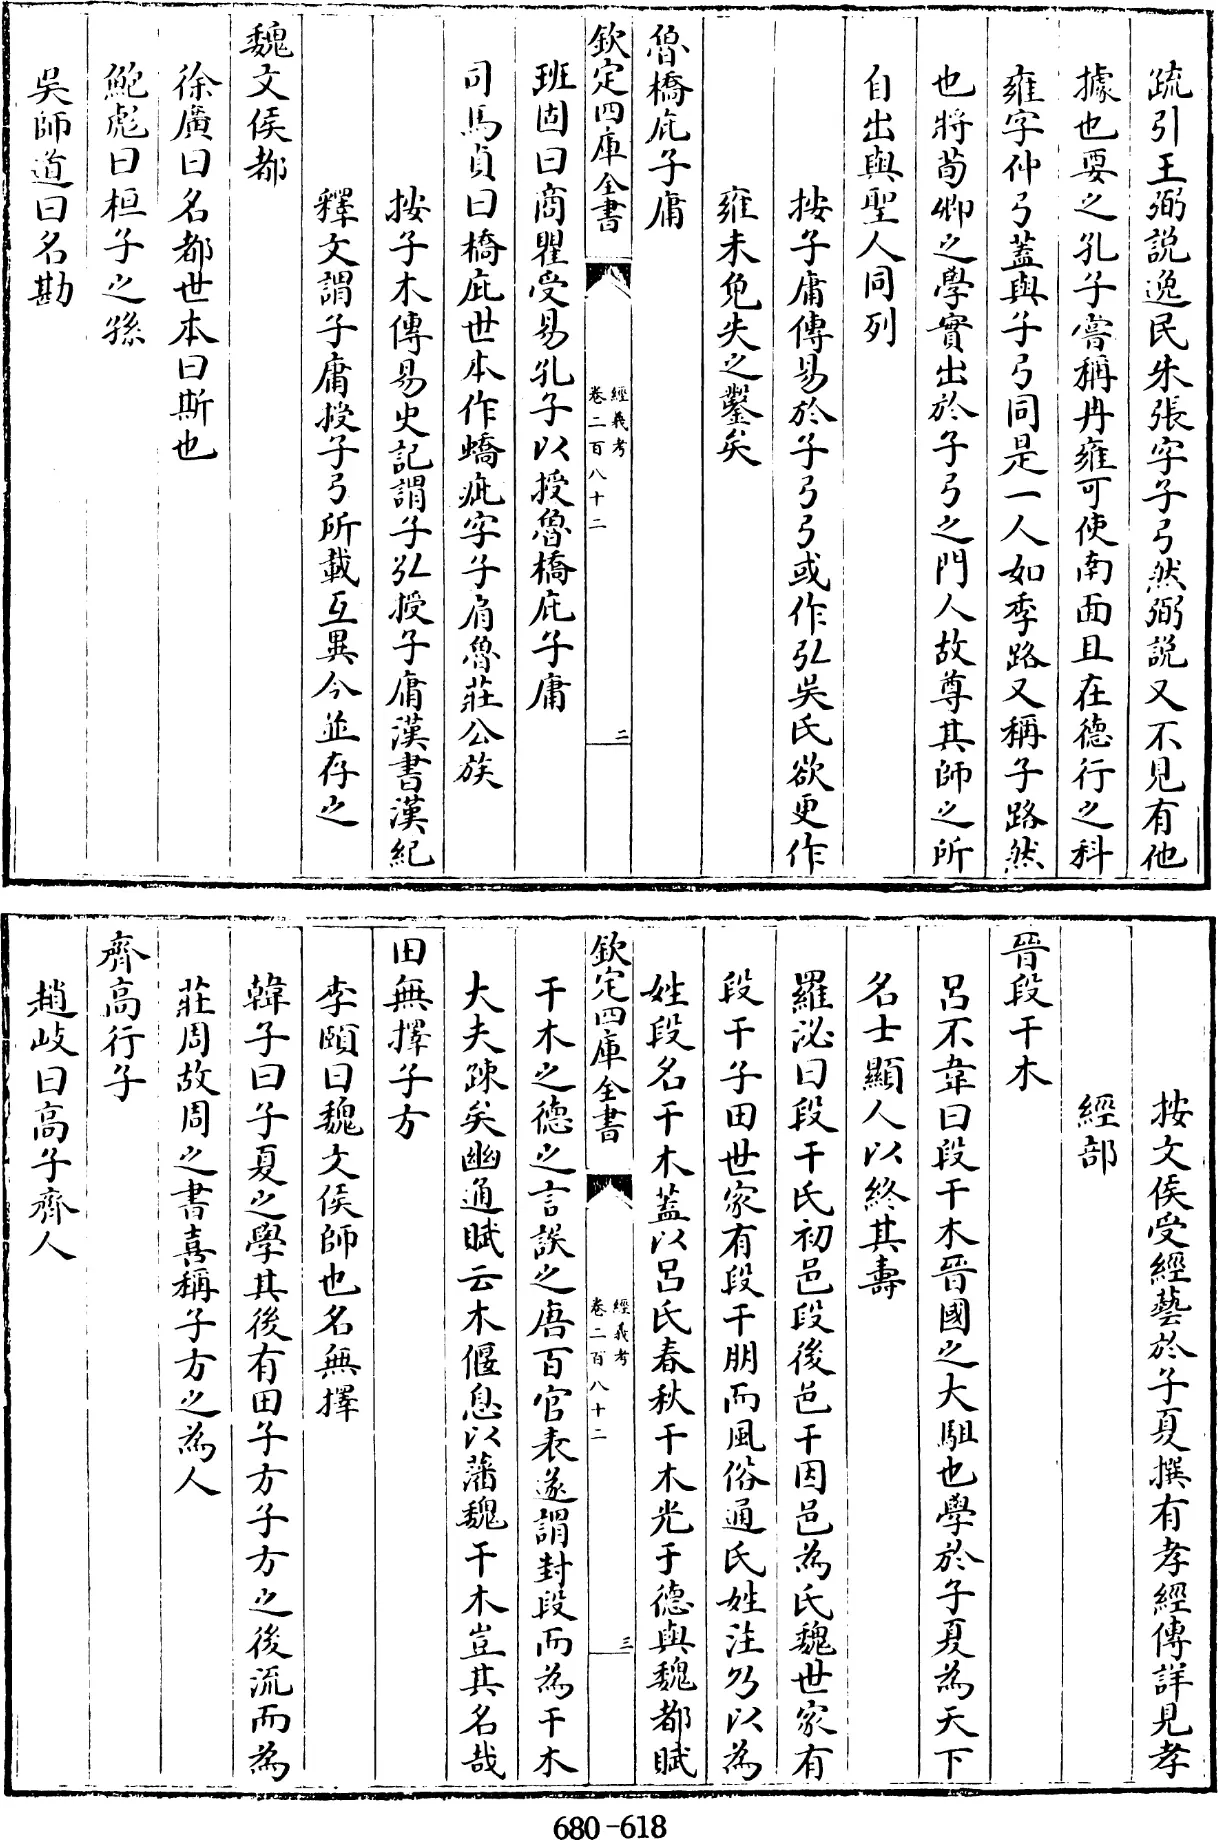 疏引王弼説逸民朱張字子弓然弼説又不見有他
據也要之孔子嘗稱冉雍可使南面且在德行之科
雍字仲弓蓋與子弓同是一人如季路又稱子路然
也將荀卿之學實出於子弓之門人故尊其師之所
自出與聖人同列
按子庸傳易於子弓弓或作弘吳氏欲更作
雍未免失之鑿矣
魯橋庇子庸
欽定四庫全書
經義考
卷二百八十二
二
班固曰商瞿受易孔子以授魯橋庇子庸
司馬貞曰橋庇世本作蟜疵字子肩魯莊公族
按子木傳易史記謂子弘授子庸漢書漢紀
釋文謂子庸授子弓所載互異今並存之
魏文侯都
徐廣曰名都世本曰斯也
鮑彪曰桓子之孫
吳師道曰名勘
按文侯受經藝於子夏撰有孝經傳詳見孝
經部
晉段干木
呂不韋曰段干木晉國之大駔也學於子夏為天下
名士顯人以終其壽
羅泌曰段干氏初邑段後邑干因邑為氏魏世家有
段干子田世家有段干朋而風俗通氏姓注乃以為
姓段名干木蓋以呂氏春秋干木光于德與魏都賦
欽定四庫全書
經義考
卷二百八十二
三
干木之德之言誤之唐百官表遂謂封段而為干木
大夫疎矣幽通賦云木偃息以藩魏干木豈其名哉
田無擇子方
李頤曰魏文侯師也名無擇
韓子曰子夏之學其後有田子方子方之後流而為
莊周故周之書喜稱子方之為人
齊高行子
趙岐曰高子齊人
680-618